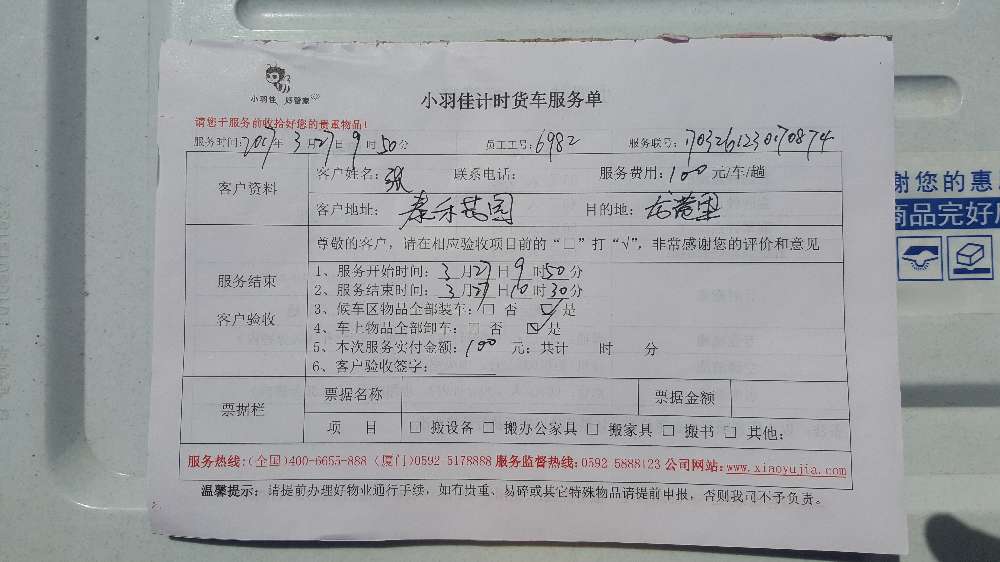 小羽佳 好管家
小羽佳计时货车服务单
请您于服务前收拾好您的贵重物品!
服务时间:2017年3月27日9时50分 员工工号:6982 服务联号:1703261230170874
客户资料
客户姓名:张 联系电话: 服务费用:100元/车/趟
客户地址:泰禾 目的地:
服务结束
客户验收
尊敬的客户,请在相应验收项目前的“□”打“√”,非常感谢您的评价和意见
1、服务开始时间:3月27日9时50分
2、服务结束时间:3月27日10时30分
3、候车区物品全部装车:□ 否 ☑ 是
4、车上物品全部卸车:□ 否 ☑ 是
5、本次服务实付金额:100 元;共计 时 分
6、客户验收签字:
票据栏
票据名称 票据金额
项 目 □ 搬设备 □ 搬办公家具 □ 搬家具 □ 搬书 □ 其他:
服务热线:(全国)400-6655-888 (厦门)0592-5178888 服务监督热线:0592-5888123 公司网站:www.xiaoyujia.com
温馨提示:请提前办理好物业通行手续,如有贵重、易碎或其它特殊物品请提前申报,否则我司不予负责。
谢您的惠
商品完好